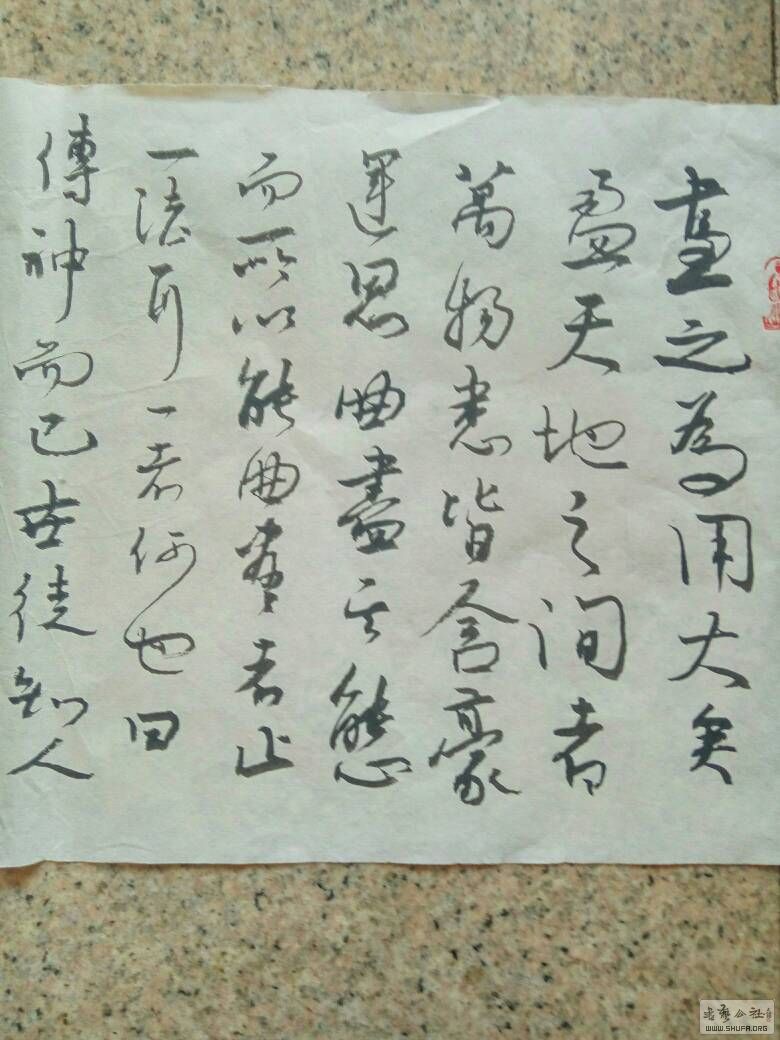 畫之為用大矣
盈天地之间者
萬物悉皆含豪
運思曲盡其態
而所以能曲盡者止
一法耳一者何也曰
傳神而已世徒知人
WWW.SHUFA.ORG